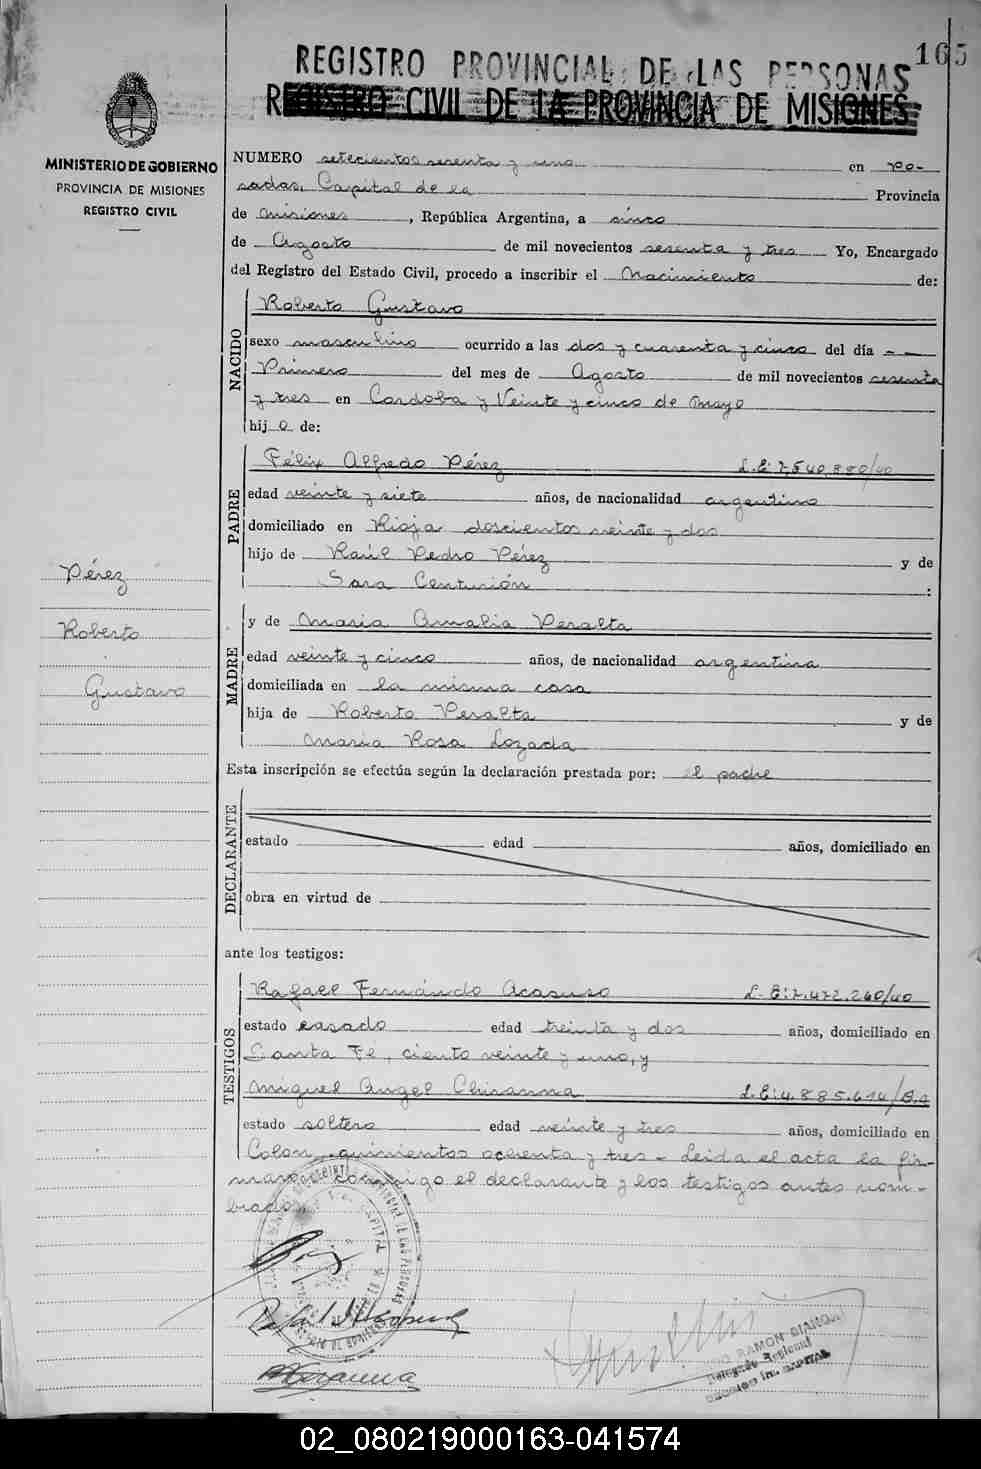 165
REGISTRO PROVINCIAL DE LAS PERSONAS
REGISTRO CIVIL DE LA PROVINCIA DE MISIONES
MINISTERIO DE GOBIERNO
PROVINCIA DE MISIONES
REGISTRO CIVIL
NUMERO setecientos sesenta y uno en Po-
sadas, Capital de la Provincia
de Misiones, República Argentina, a cinco
de Agosto de mil novecientos sesenta y tres Yo, Encargado
del Registro del Estado Civil, procedo a inscribir el Nacimiento de:
NACIDO
Roberto Gustavo
sexo masculino ocurrido a las dos y cuarenta y cinco del día --
Primero del mes de Agosto de mil novecientos sesenta
y tres en Cordoba y Veinte y cinco de Mayo
hij o de:
PADRE
Félix Alfredo Pérez L.E: 7,540,850/40
edad veinte y siete años, de nacionalidad argentino
domiciliado en Rioja doscientos veinte y dos
hijo de Raúl Pedro Pérez y de
Sara Centurión :
Pérez
Roberto
Gustavo
MADRE
y de Maria Amalia Peralta
edad veinte y cinco años, de nacionalidad argentina
domiciliada en la misma casa
hija de Roberto Peralta y de
Maria Rosa Lozada
Esta inscripción se efectúa según la declaración prestada por: el padre
DECLARANTE
estado edad años, domiciliado en
obra en virtud de
ante los testigos:
TESTIGOS
Rafael Fernándo Acasuso L.E: 7.472.260/40
estado casado edad treinta y dos años, domiciliado en
Santa Fé, ciento veinte y uno, y
Miguel Angel Chiranna L.E: 4.885.614/B.A
estado soltero edad veinte y tres años, domiciliado en
Colon, quinientos ochenta y tres - Leida el acta la fir-
maron conmigo el declarante y los testigos antes nom-
brados
RAMON
Delegado Regional
CAPITAL
02_080219000163-041574